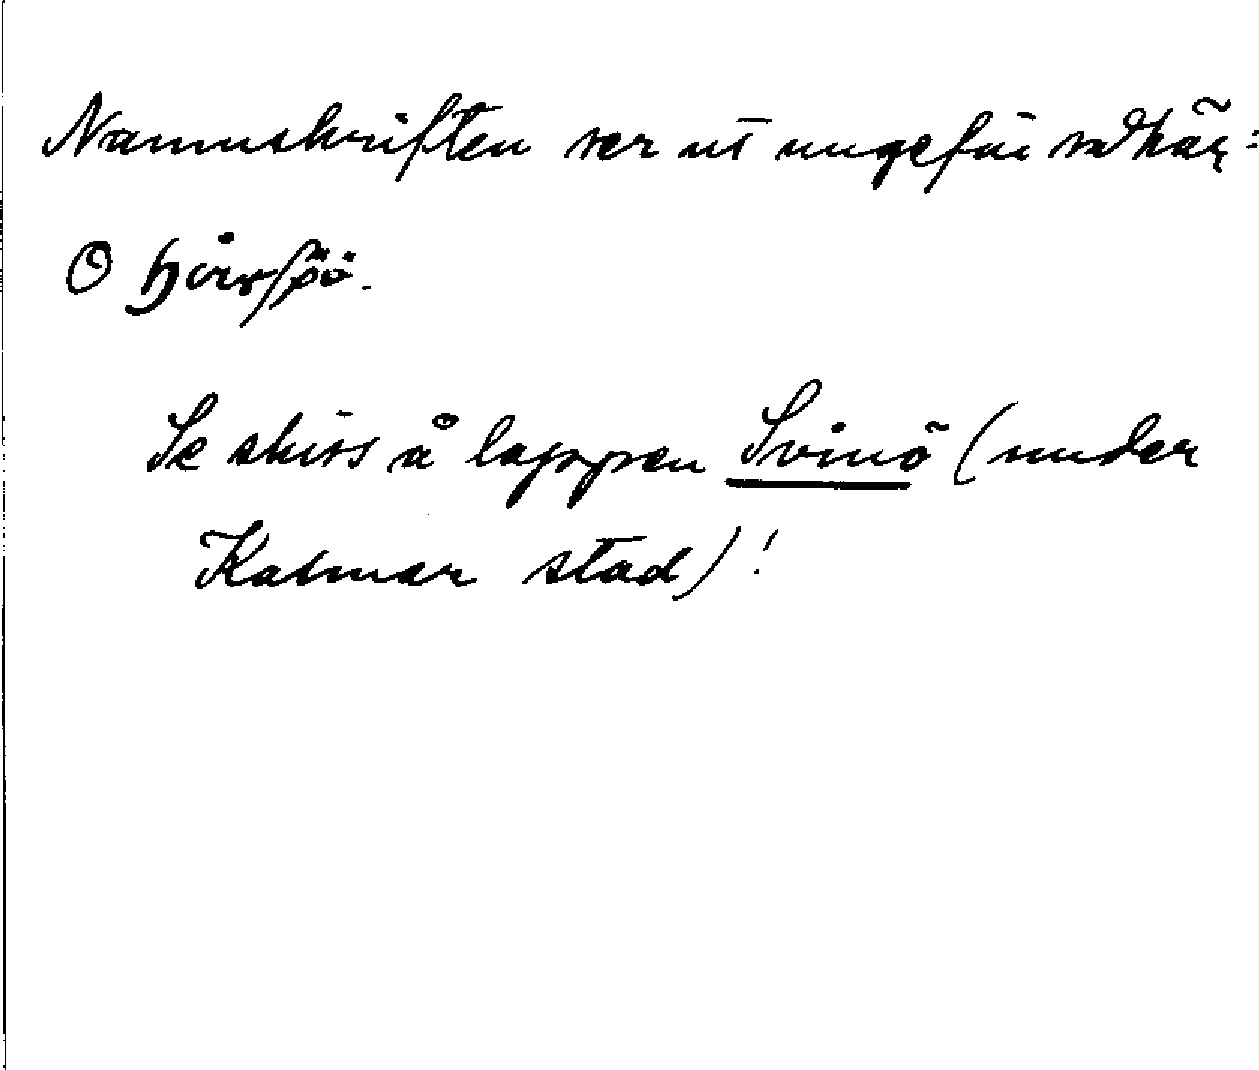 Namnskriften ser ut ungefär såhär:
O
Se skiss å lappen Svinö (under
Kalmar stad)!